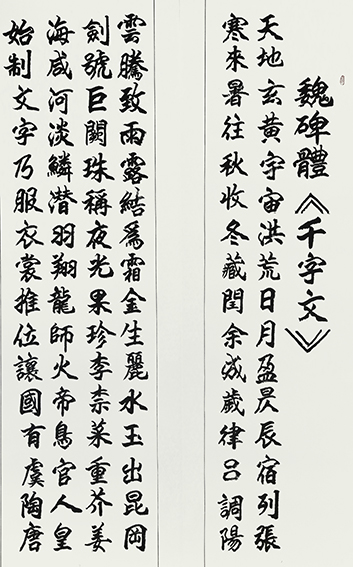 魏碑體《千字文》
天地玄黄宇宙洪荒日月盈昃辰宿列張
寒來暑往秋收冬藏閏余成歲律吕調陽
雲騰致雨露結爲霜金生麗水玉出昆岡
劍號巨闕珠稱夜光果珍李柰菜重芥姜
海咸河淡鱗潜羽翔龍師火帝鳥官人皇
始制文字乃服衣裳推位讓國有虞陶唐